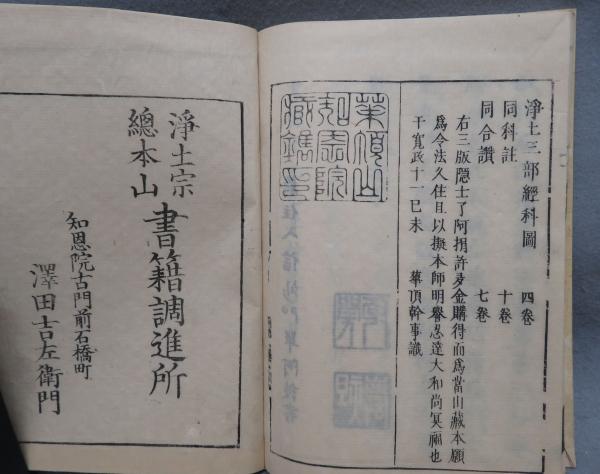 淨土三部經科圖 四卷
同科註 十卷
同合讚 七卷
右三版隱士了阿捐許多金購得而為當山藏本願
為令法久住且以擬本師明譽忍達大和尚冥福也
于寬政十一巳未 華頂幹事識
華頂山
知恩院
藏鐫印
淨土宗
總本山
書籍調進所
知恩院古門前石橋町
澤田吉左衛門